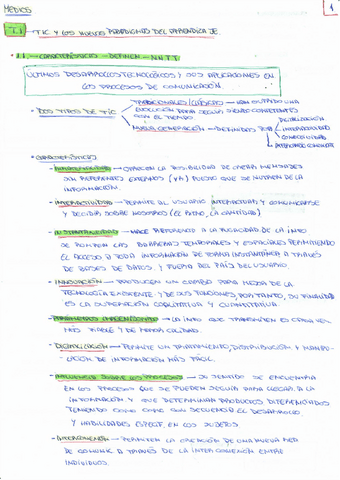 MEDIOS
1
T.1 - TIC Y LOS NUEVOS PARADIGMAS DEL APRENDIZAJE.
1.1.- CARACTERÍSTICAS - DEFINEN - NNTT
ÚLTIMOS DESARROLLOS TECNOLÓGICOS Y SUS APLICACIONES EN
LOS PROCESOS DE COMUNICACIÓN
- DOS TIPOS DE TIC
TRADICIONALES/CLÁSICOS - HAN SUFRIDO UNA
EVOLUCIÓN PARA SEGUIR SIENDO COMPETENTES
CON EL TIEMPO
NUEVA GENERACIÓN - DEFINIDOS POR
DIGITALIZACIÓN
INTERACTIVIDAD
CONECTIVIDAD
- CARACTERÍSTICAS
- INMATERIALIDAD - OFRECEN LA POSIBILIDAD DE CREAR MENSAJES
SIN REFERENTES EXTERNOS (YA) PUESTO QUE SE NUTREN DE LA
INFORMACIÓN.
- INTERACTIVIDAD - PERMITE AL USUARIO INTERACTUAR Y COMUNICARSE
Y DECIDIR SOBRE NOSOTROS (EL RITMO, LA CANTIDAD)
- INSTANTANEIDAD - HACE REFERENCIA A LA RAPIDEZ DE LA INFO
SE ROMPEN LAS BARRERAS TEMPORALES Y ESPACIALES PERMITIENDO
EL ACCESO A TODA INFORMACIÓN DE FORMA INSTANTÁNEA A TRAVÉS
DE BASES DE DATOS, Y FUERA DEL PAÍS DEL USUARIO.
- INNOVACIÓN - PRODUCEN UN CAMBIO PARA MEJOR DE LA
TECNOLOGÍA EXISTENTE Y DE SUS FUNCIONES, POR TANTO, SU FINALIDAD
ES LA SUPERACIÓN CUALITATIVA Y CUANTITATIVA.
- LA INFO QUE TRANSMITEN ES CADA VEZ
MÁS FIABLE Y DE MAYOR CALIDAD.
- DIGITALIZACIÓN - PERMITE UN TRATAMIENTO, DISTRIBUCIÓN Y MANIPU-
LACIÓN DE INFORMACIÓN MÁS FÁCIL.
- INFLUENCIA SOBRE LOS PROCESOS - SU SENTIDO SE ENCUENTRA
EN LOS PROCESOS QUE SE PUEDEN SEGUIR PARA LLEGAR A LA
INFORMACIÓN Y QUE DETERMINAN PRODUCTOS DIFERENCIADOS
TENIENDO COMO CONSECUENCIA EL DESARROLLO
Y HABILIDADES ESPECÍF. EN LOS SUJETOS.
- INTERCONEXIÓN - PERMITEN LA CREACIÓN DE UNA NUEVA RED
DE COMUNIC. A TRAVÉS DE LA INTERCONEXIÓN ENTRE
INDIVIDUOS.